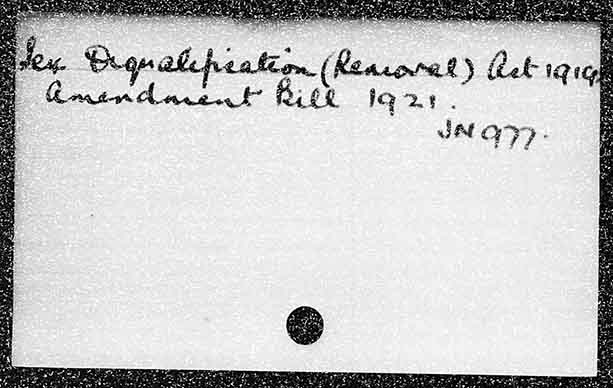 Sex Disqualification (Removal) Act 1919.
Amendment Bill 1921.
JN 977.